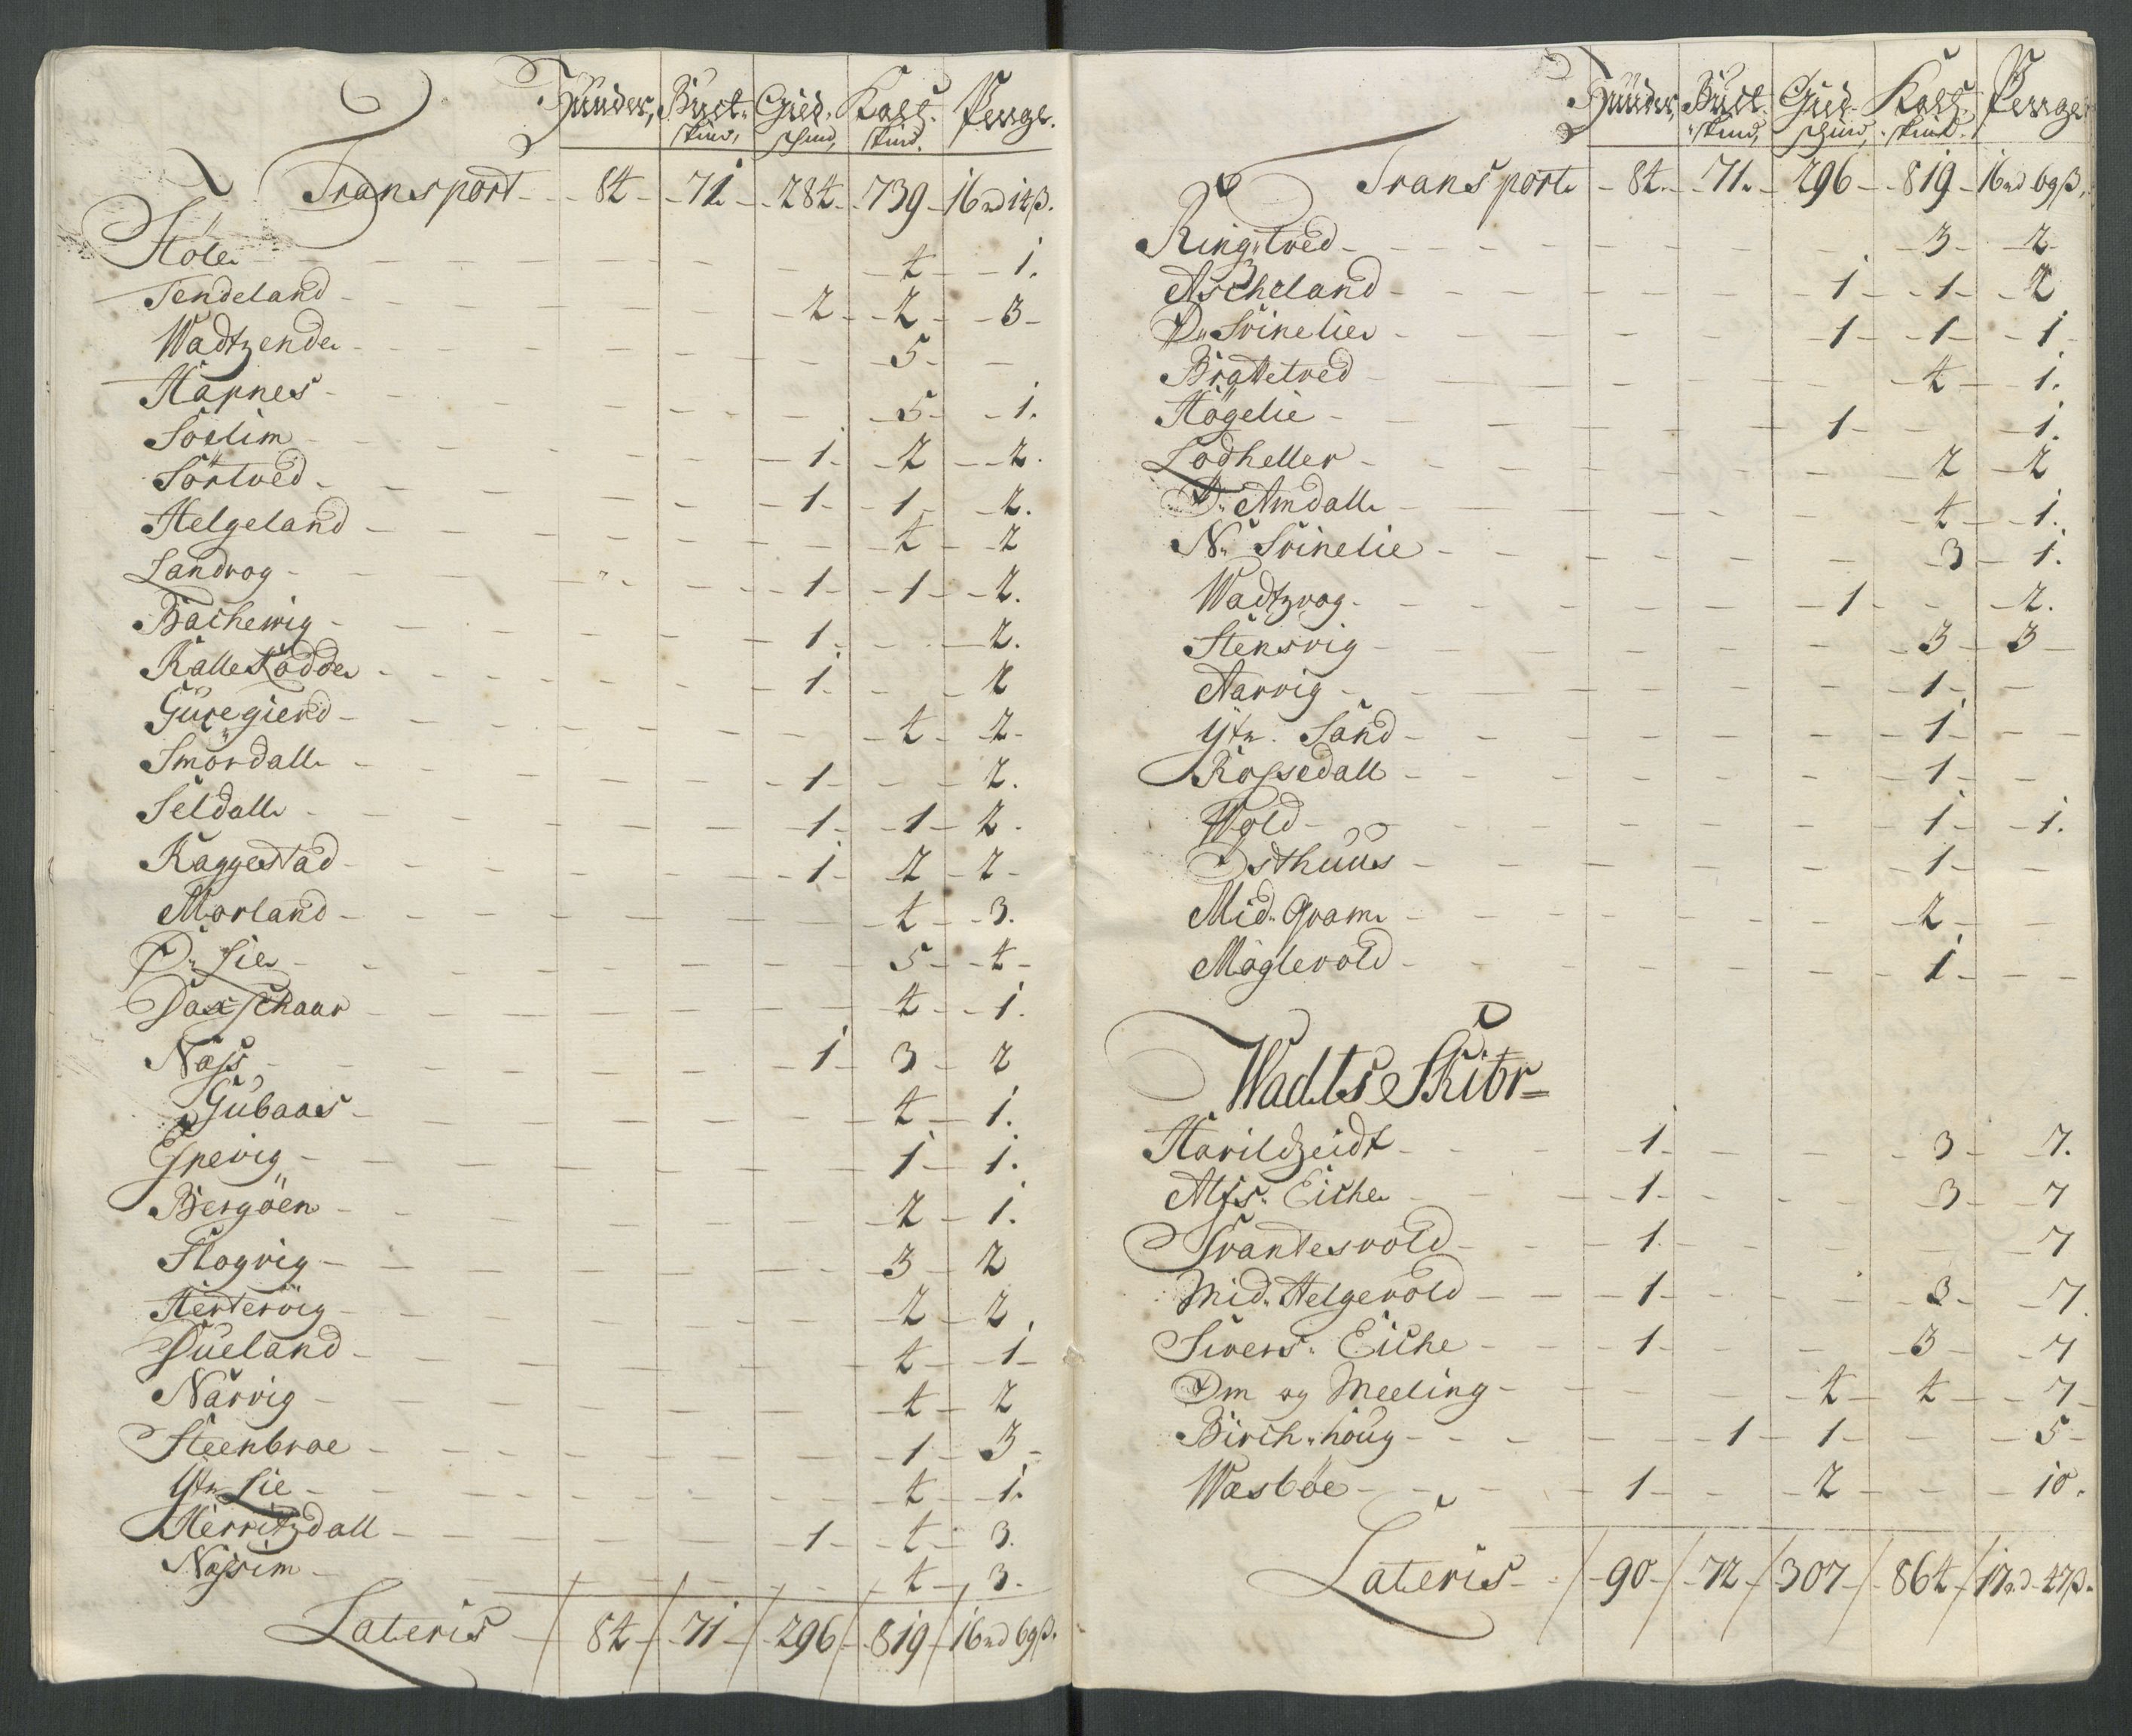 Hunder, Buck- Gied- Kalf- Penge.
skind, schind, skind.
Transport - 84 - 71 - 284 - 739 - 16 rd 14 ß.
Höle - 4 - 1.
Tendeland - 2 - 2 - 3 -
Wadtzende - 5 -
Hapnes - 5 - 1.
Soelim - 1 - 2 - 2.
Sörtved - 1 - 1 - 2.
Helgeland - 4 - 2
Landvog - 1 - 1 - 2.
Bachewig - 1 - 2.
Kalle Kodde - 1 - 2
Giregierd - 4 - 2 -
Smördall - 1 - 2.
Seldall - 1 - 1 - 2 -
Kaggestad - 1 - 2 - 2 -
Morland - 4 - 3.
Lie - 5 - 4 -
Daxschaar - 4 - 1.
Næss - 1 - 3 - 2
Gubaas - 4 - 1.
Espevig - 1 - 1.
Bergöen - 2 - 1.
Slogvig - 3 - 2
Hertervig - 2 - 2
Dueland - 4 - 1 -
Narvig - 4 - 2
Steenbroe - 1 - 3 -
Ytr Lie - 4 - 1.
Herritzdall - 1 - 4 - 3.
Næssim - 4 - 3.
Lateris - 84 - 71 - 296 - 819 - 16 rd 69 ß.
Hunder, Buck- Gied- Kalf- Penge
skind, schind, skind.
Transport - 84 - 71 - 296 - 819 - 16 rd 69 ß.
Ringstved - 3 - 2
Ascheland - 1 - 1 - 2
Svinelie - 1 - 1 - 1
Brattetved - 4 - 1.
Högelie - 1 - 1.
Lodheller - 2 - 2
Amdall - 4 - 1.
N. Svinelie - 3 - 1.
Wadtzvog - 1 - 2.
Stensvig - 3 - 3
Aarvig - 1 -
Ytr. Sand - 1 -
Rossedall - 1 -
Wold - 1 - 1.
Osthuus - 1 -
Mid. Qvam - 2 -
Möglevold - 1 -
Wadts Skibr=
Harildzeidt - 1 - 3 - 7.
Alfs. Eiche - 1 - 3 - 7
Svantesvold - 1 - 7
Mid. Helgevold - 1 - 3 - 7.
Sivers. Eiche - 1 - 3 - 7
Om og Meeling - 4 - 4 - 7 -
Birch-houg - 1 - 1 - 5 -
Wasböe - 1 - 2 - 10.
Lateris - 90 - 72 - 307 - 864 - 17 rd 27 ß.